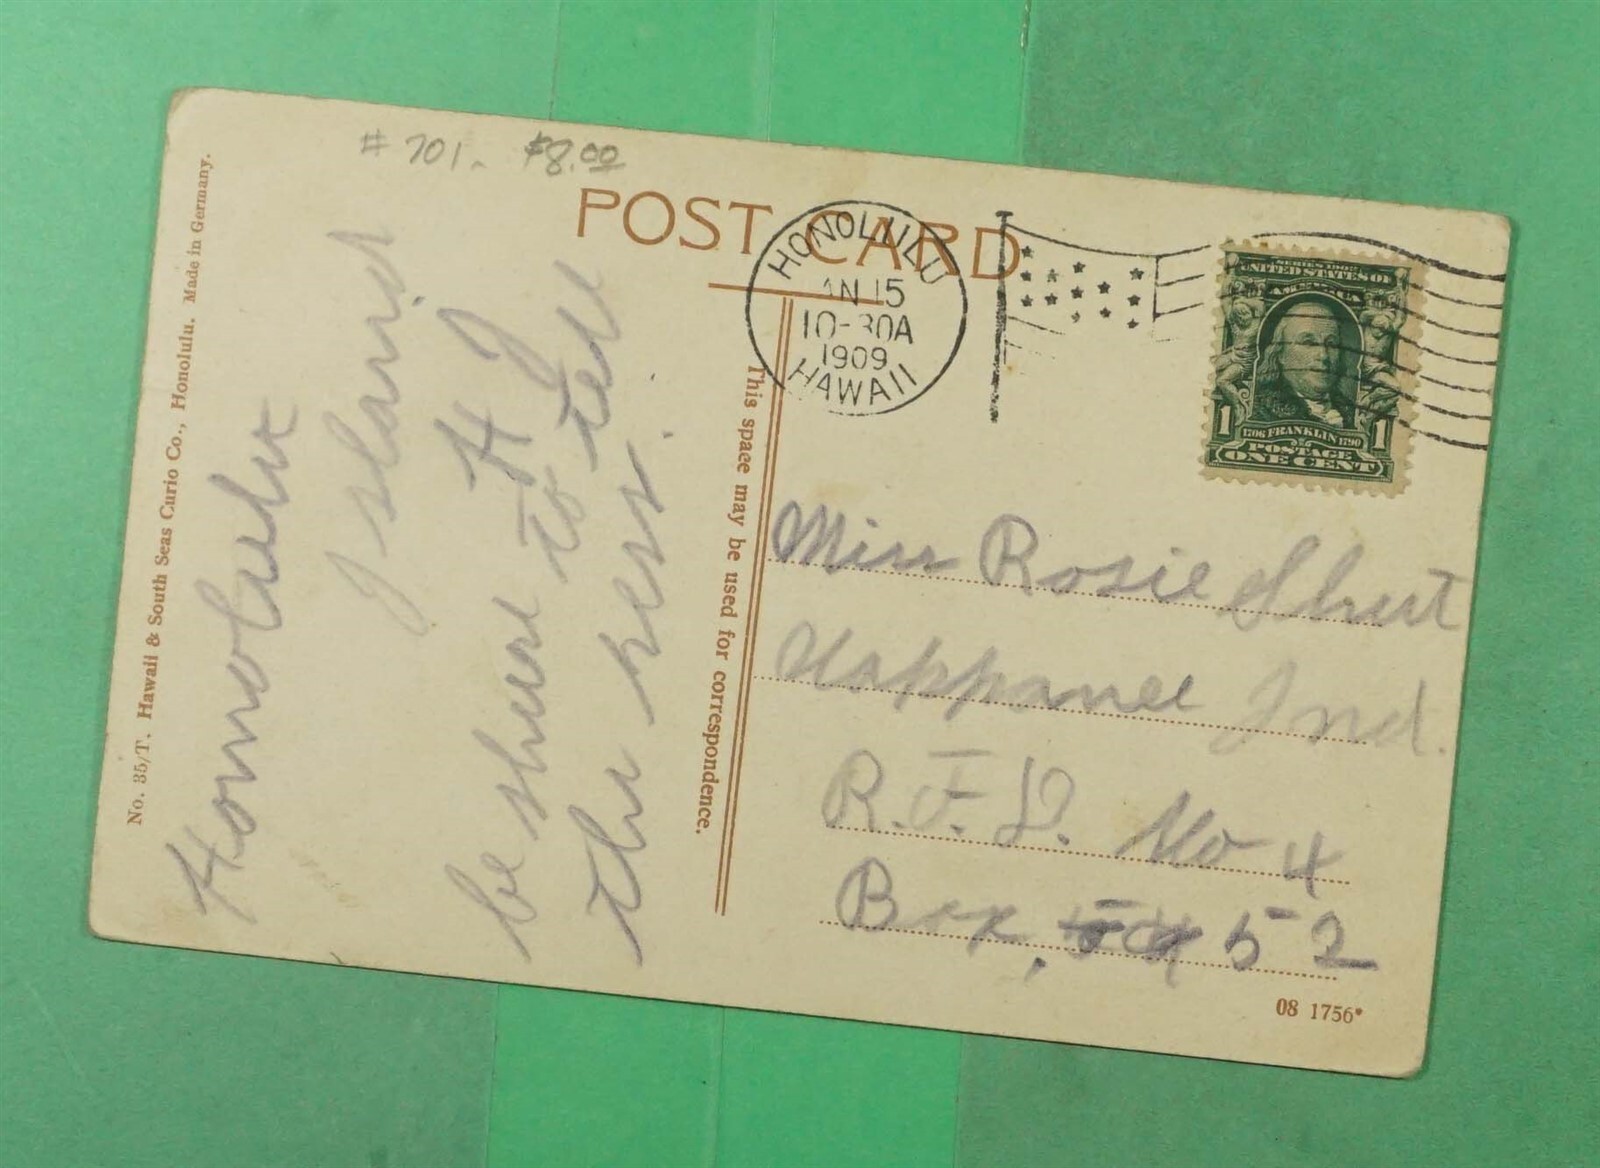 # 701. $8.00
POST CARD
HONOLULU
JAN 15
10-30A
1909
HAWAII
SERIES 1902
UNITED STATES OF
AMERICA
1 1706 FRANKLIN 1790 1
POSTAGE
ONE CENT
No. 35/T. Hawaii & South Seas Curio Co., Honolulu. Made in Germany.
Island
H J
be shure to tell
the
This space may be used for correspondence.
Miss Rosie
Nappanee Ind.
R.F.D. No 4
Box, 52
08 1756*